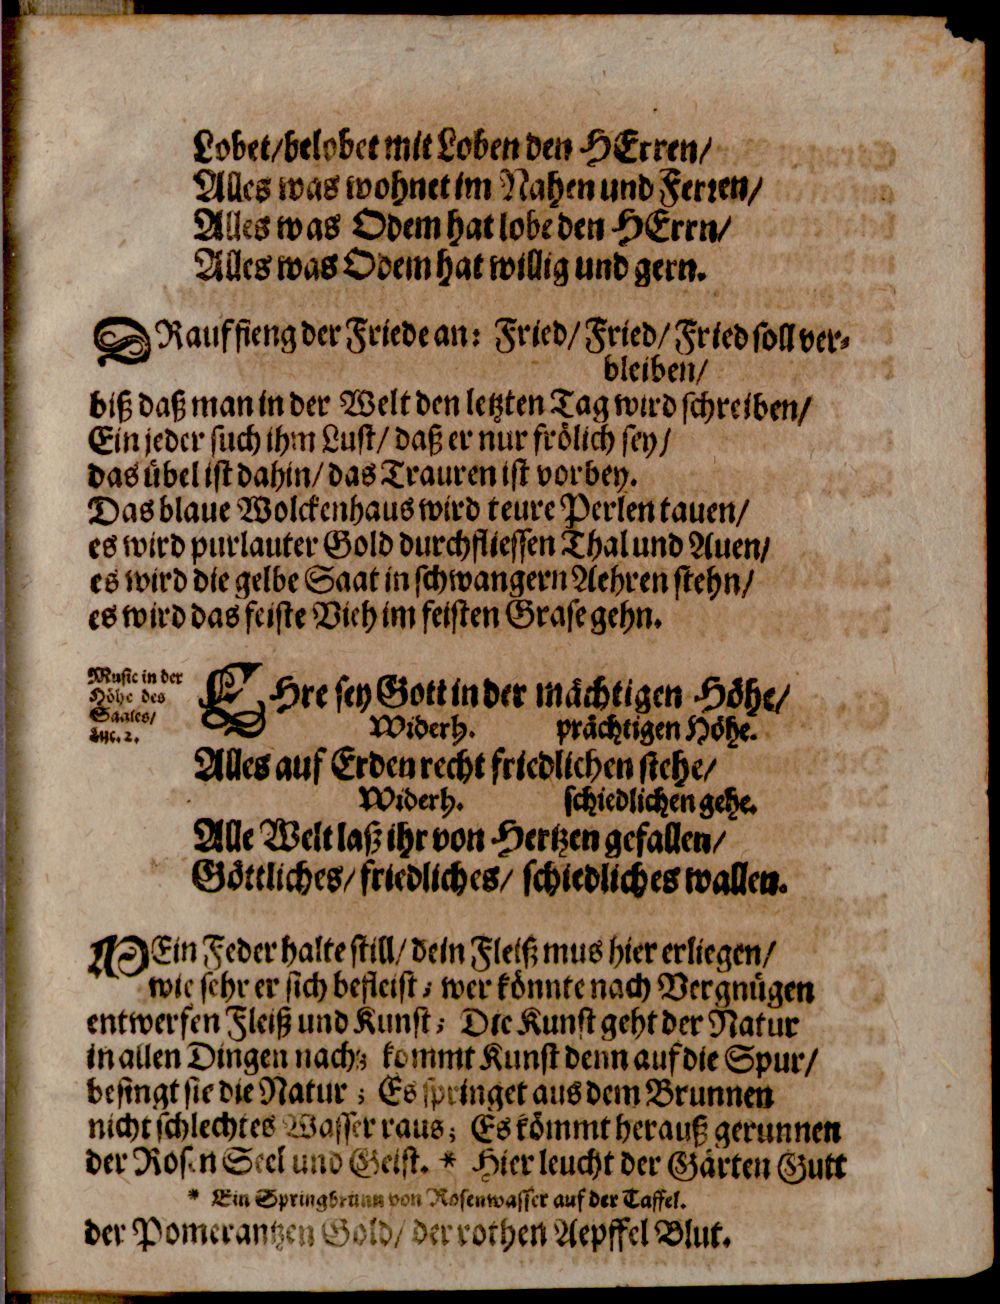 Lobet/belobet mit Loben den HErren/
Alles was wohnet im Nahen und Ferren/
Alles was Odem hat lobe den HErrn/
Alles was Odem hat willig und gern.
DRauf fieng der Friede an: Fried/ Fried/ Fried soll ver-
bleiben/
biß daß man in der Welt den letzten Tag wird schreiben/
Ein jeder such ihm Lust/ daß er nur frölich sey/
das übel ist dahin/ das Trauren ist vorbey.
Das blaue Wolckenhaus wird teure Perlen tauen/
es wird purlauter Gold durchfliessen Thal und Auen/
es wird die gelbe Saat in schwangern Aehren stehn/
es wird das feiste Vieh im feisten Grase gehn.
Music in der
Höhe des
Saales/
Luc. 2.
EHre sey Gott in der mächtigen Höhe/
Widerh. prächtigen Höhe.
Alles auf Erden recht friedlichen stehe/
Widerh. schiedlichen gehe.
Alle Welt laß ihr von Hertzen gefallen/
Göttliches/ friedliches/ schiedliches wallen.
MEin Feder halte still/ dein Fleiß mus hier erliegen/
wie sehr er sich befleist; wer könnte nach Vergnügen
entwerfen Fleiß und Kunst; Die Kunst geht der Natur
in allen Dingen nach; kommt Kunst denn auf die Spur/
besingt sie die Natur; Es springet aus dem Brunnen
nicht schlechtes Wasser raus; Es kömmt herauß gerunnen
der Rosen Seel und Geist. * Hier leucht der Gärten Gutt
* Ein Springbrunn von Rosenwasser auf der Taffel.
der Pomerantzen Gold/ der rothen Aepffel Blut.